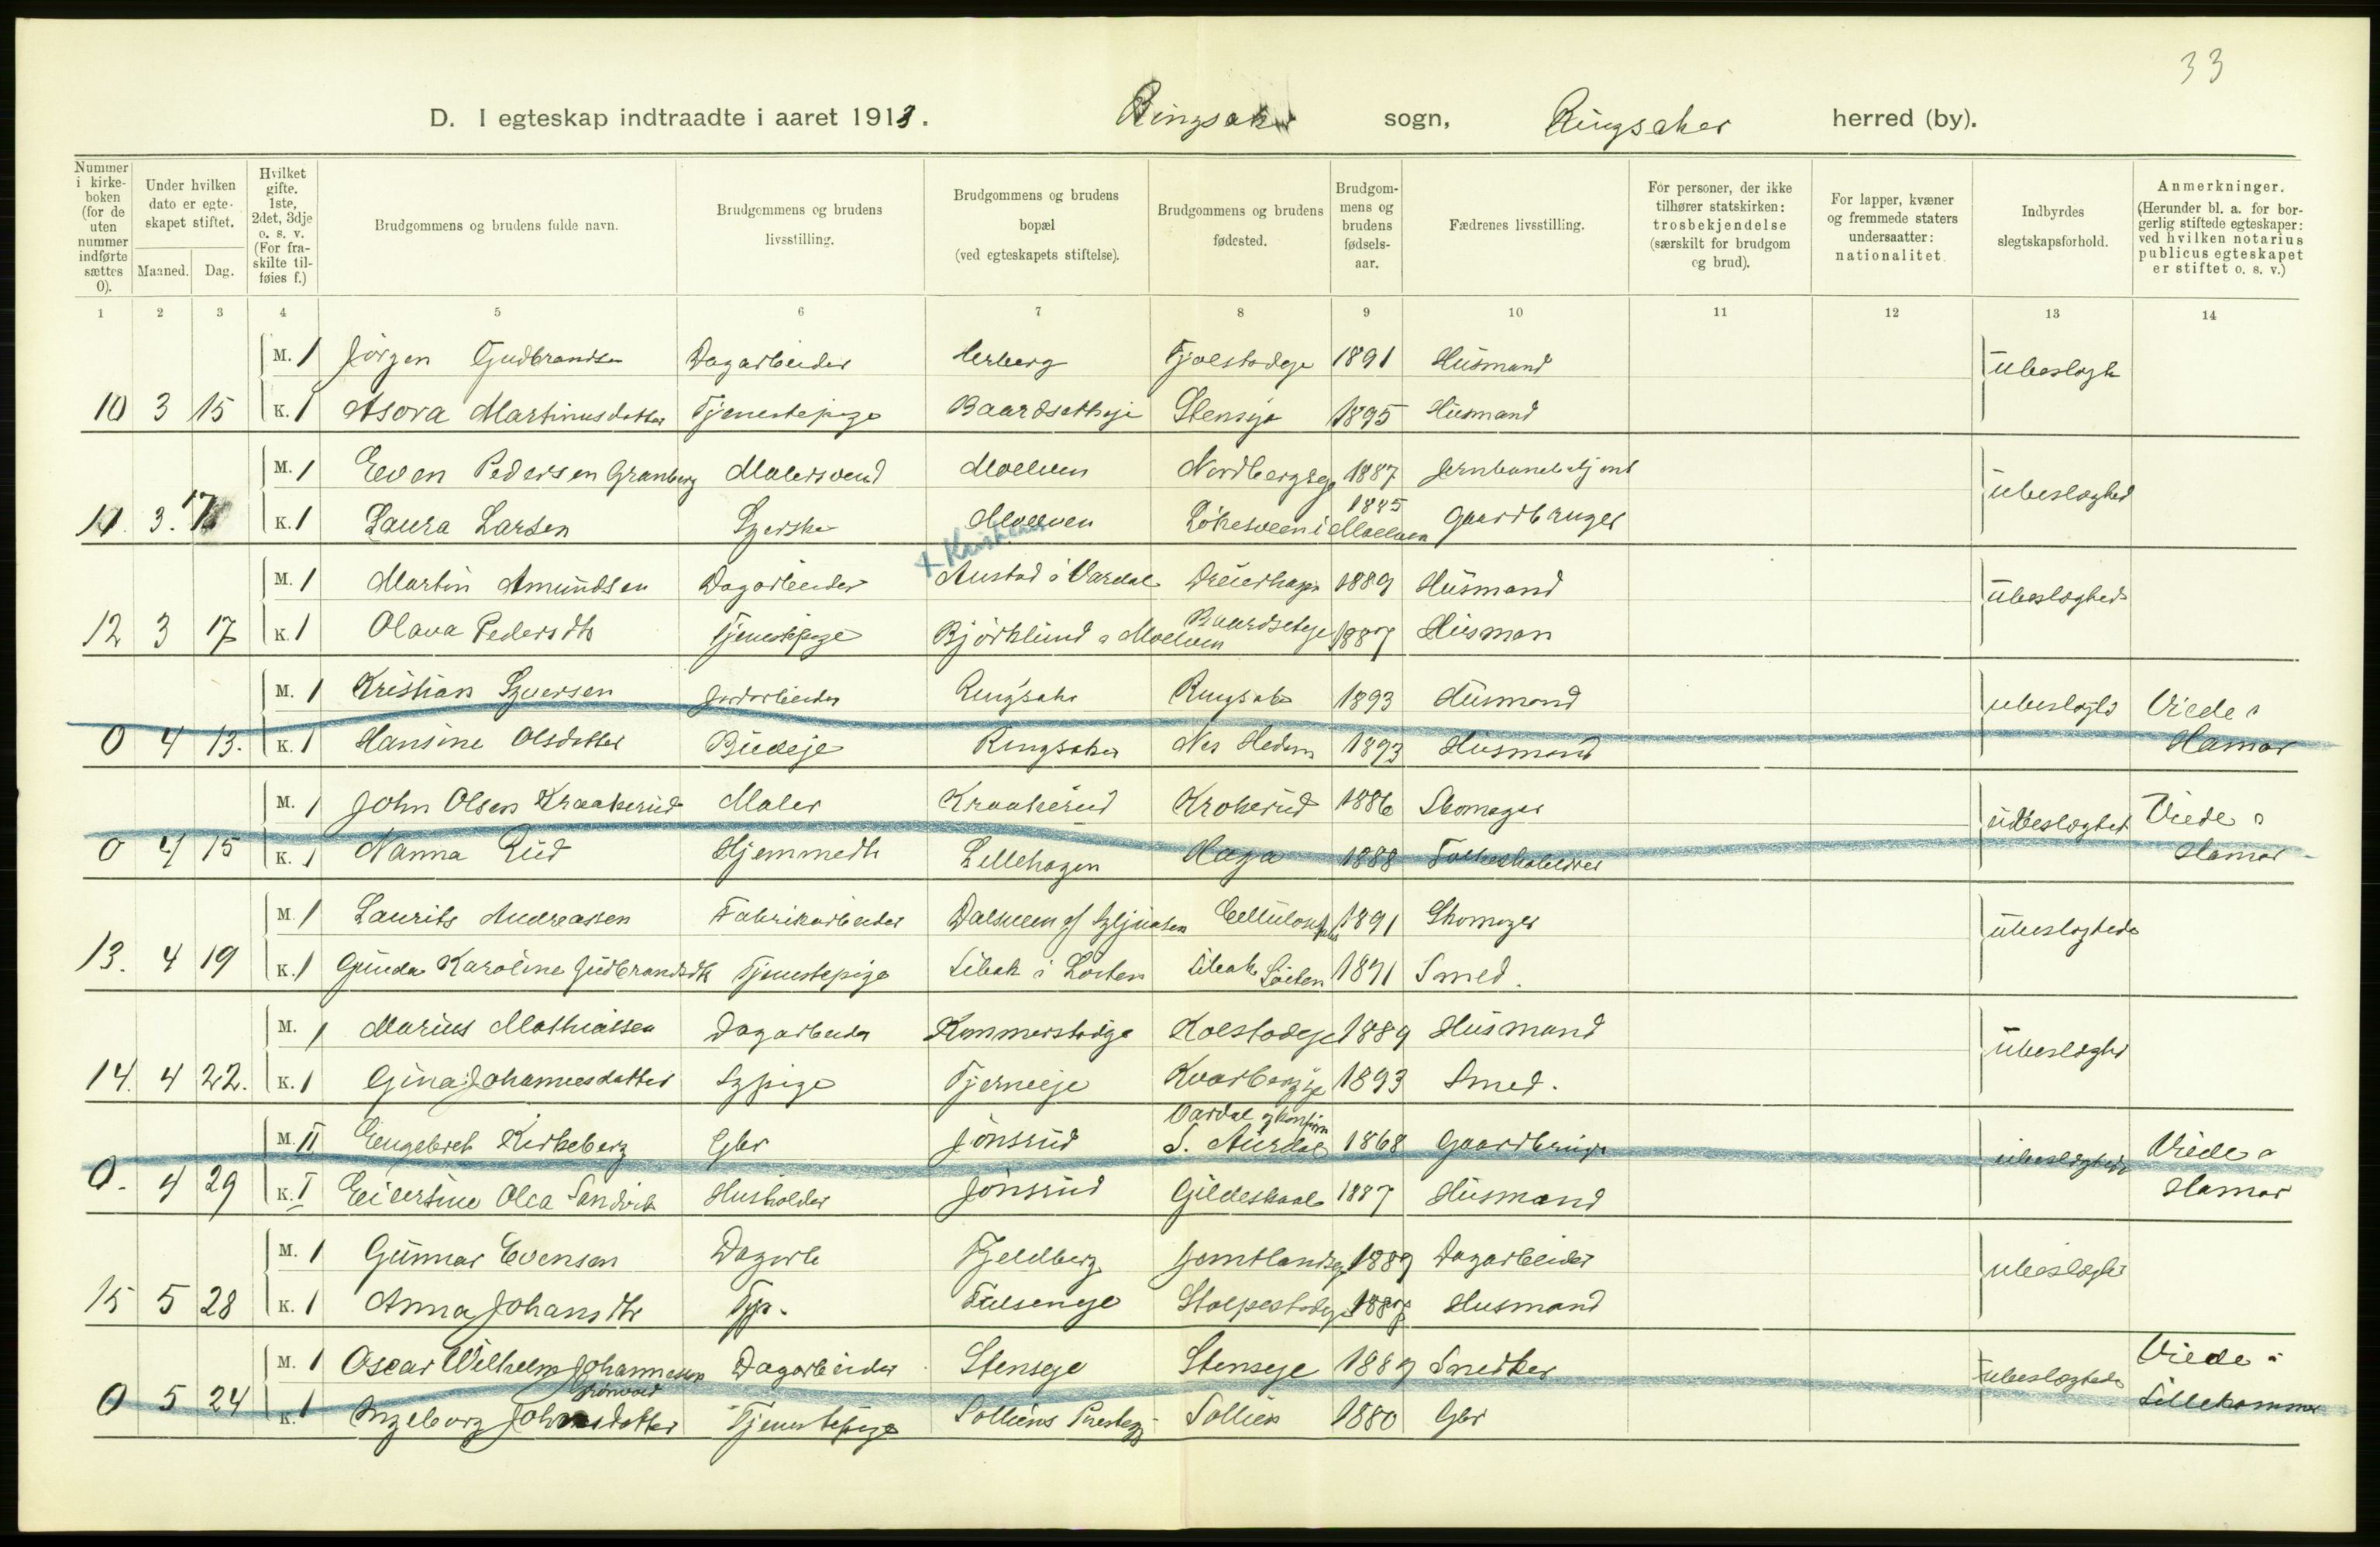 33
D. I egteskap indtraadte i aaret 1913. Ringsaker sogn, Ringsaker herred (by).
Nummer i kirke-boken (for de uten nummer indførte sættes 0). Under hvilken dato er egte-skapet stiftet. Maaned. Dag. Hvilket gifte. 1ste, 2det, 3dje o. s. v. (For fra-skilte til-føies f.) Brudgommens og brudens fulde navn. Brudgommens og brudens livsstilling. Brudgommens og brudens bopæl (ved egteskapets stiftelse). Brudgommens og brudens fødested. Brudgom-mens og brudens fødsels-aar. Fædrenes livsstilling. For personer, der ikke tilhører statskirken: trosbekjendelse (særskilt for brudgom og brud). For lapper, kvæner og fremmede staters undersaatter: nationalitet Indbyrdes slegtskapsforhold. Anmerkninger. (Herunder bl. a. for bor-gerlig stiftede egteskaper: ved hvilken notarius publicus egteskapet er stiftet o. s. v.)
1 2 3 4 5 6 7 8 9 10 11 12 13 14
M. 1 Jörgen Gudbrandsen Dagarbeider Herberg Tjolstadeje 1891 Husmand ubeslegte
10 3 15 K. 1 Asora Martinusdatter Tjenestepige Baardsetheje Stenseje 1895 Husmand
M. 1 Even Pedersen Granberg Malersvend Moelven Nordbergseje 1887 ubeslegted
11. 3. 17 K. 1 Laura Larsen Syerske Moelven i Moelven 1885 Gaardbruger
+ Kristiania
M. 1 Martin Amundsen Dagarbeider Austad i Vardal 1889 Husmand ubeslegted
12 3 17 K. 1 Olava Pedersdtr Tjenestepige Björklund i Moelven Baardseteje 1887 Husman
M. 1 Kristian Syversen Jordarbeider Ringsaker Ringsaker 1893 Husmand ubeslegte Viede i
0 4 13. K. 1 Hansine Olsdatter Budeje Ringsaker Nes Hedem 1893 Husmand Hamar
M. 1 John Olsen Kraakerud Maler Kraakerud Krokerud 1886 Skomager ubeslegted Viede i
0 4 15 K. 1 Nanna Rud Hjemmedtr Lillehagen Haga 1888 Hamar
M. 1 Laurits Andreassen Fabrikarbeider Dalsveen 1891 Skomager ubeslegtede
13. 4 19 K. 1 Gunda Karoline Gudbrandsdtr Tjenestepige Libak i Löiten Libak Löiten 1891 Smed.
M. 1 Marius Mathiassen Dagarbeider Kommerstadeje Kolstadeje 1889 Husmand ubeslegted
14. 4 22. K. 1 Gina Johannesdatter Sypige Tjerneeje Kvarbergeje 1893 Smed.
M. II Engebret Kirkeberg Gbr Jönsrud Vardal S. Aurdal 1868 Gaardbruger ubeslegtede Viede i
0. 4 29 K. I Eivertine Olea Sandvik Husholder Jönsrud Gildeskaal 1887 Husmand Hamar
M. 1 Gunnar Evensen Dagarb Fjeldberg Jemtlandseje 1889 Dagarbeider ubeslegted
15 5 28 K. 1 Anna Johansdtr Tjp. Fulsengeje Stolpestadeje 1887 Husmand
M. 1 Oscar Wilhelm Johannessen Dagarbeider Stenseje Stenseje 1889 Snedker ubeslegtede Viede i
0 5 24 K. 1 Ingeborg Johnsdatter Tjenestepige Solliens Prestegj Sollien 1880 Gbr Lillehammer